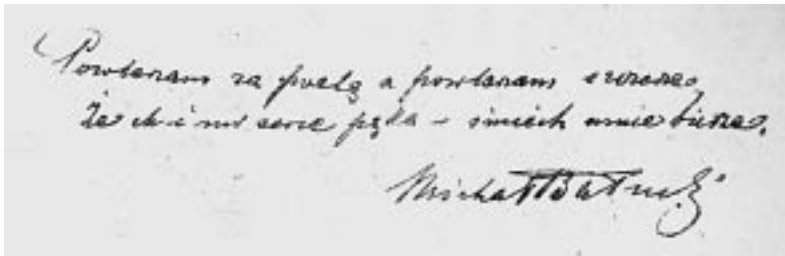 Powtarzam za poetą a powtarzam szczerze,
Że choć mi serce pęka – śmiech mnie bierze.
Michał Bałucki